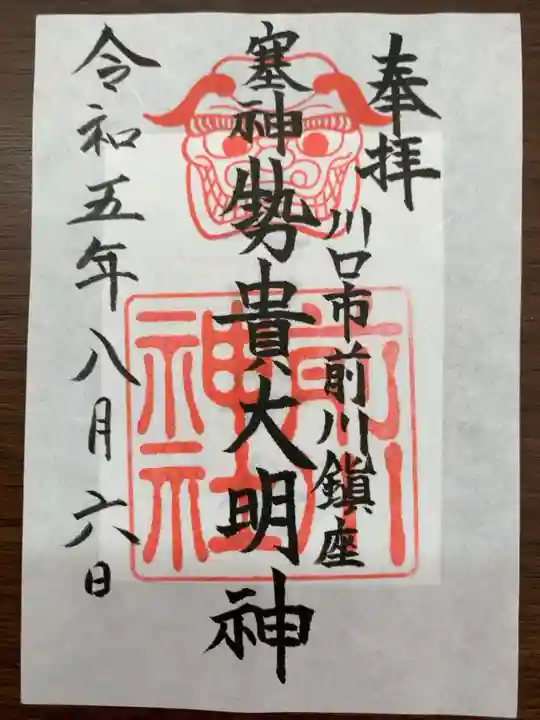 奉拝
川口市前川鎮座
塞神勢貴大明神
令和五年八月六日
前川
神社